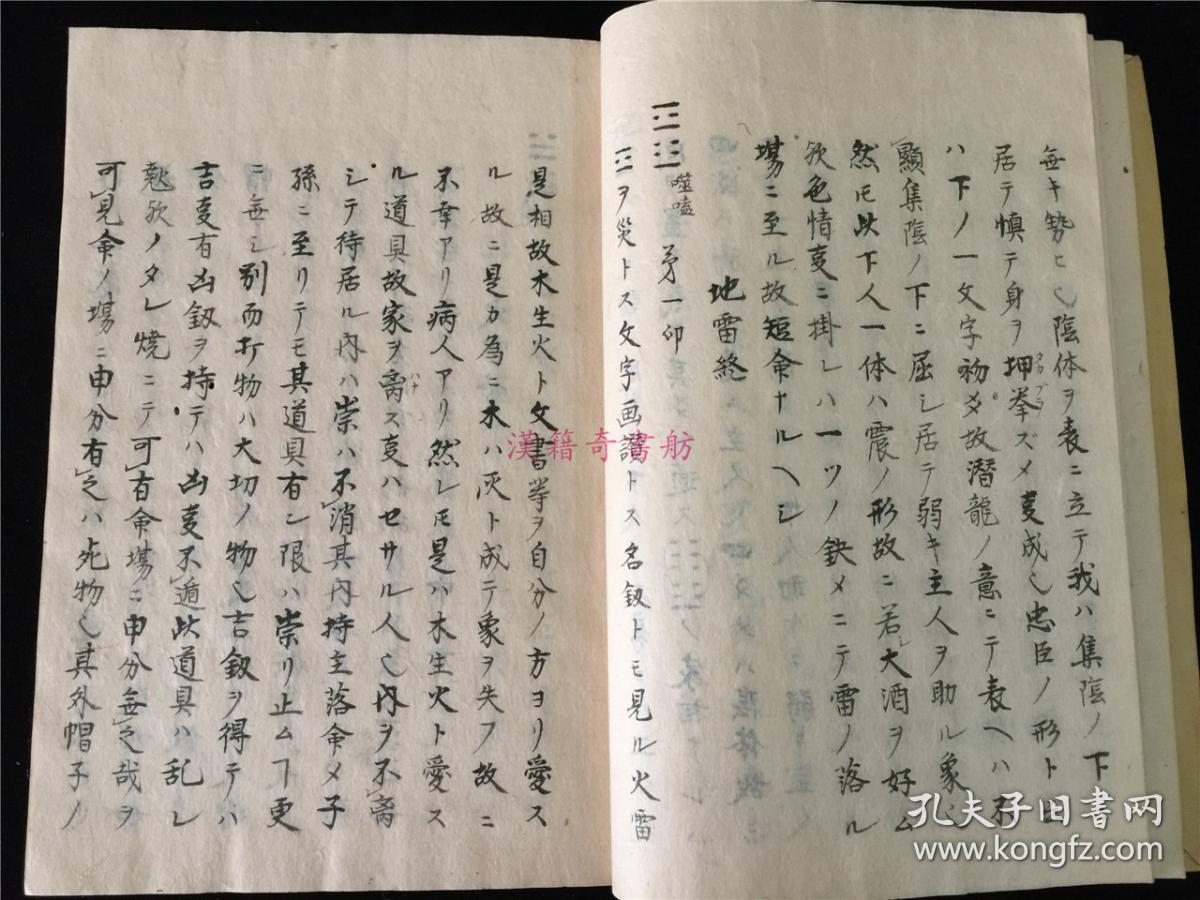 無キ勢ヒ也陰体ヲ表ニ立テ我ハ集陰ノ下
居テ慎テ身ヲ押挙ズメ叓成也忠臣ノ形ト
ハ下ノ一文字初爻故潜龍ノ意ニテ表ヘハ不
顕集陰ノ下ニ屈シ居テ弱キ主人ヲ助ル象
然モ此下人一体ハ震ノ形故ニ若大酒ヲ好ム
欲色情叓ニ掛レハ一ツノ鈌メニテ雷ノ落ル
場ニ至ル故短命ナルヘシ
地雷終
噬嗑 㐧一卯
ヲ災トス文字画讃トス名釼トモ見ル火雷
是相故木生火ト文書等ヲ自分ノ方ヨリ愛ス
ル故ニ是カ為ニ木ハ灰ト成テ象ヲ失フ故ニ
不幸アリ病人アリ然レモ是ハ木生火ト愛ス
ル道具故家ヲ离ス叓ハセサル人也内ヲ不离
シテ待居ル内ハ崇ハ不消其内持主落命メ子
孫ニ至リテモ其道具有ン限ハ崇リ止ム丁更
ニ無シ別而打物ハ大切ノ物也吉釼ヲ得テハ
吉叓有凶釼ヲ持テハ凶叓不遁此道具ハ乱レ
尅欤ノタレ焼ニテ可有命場ニ申分無之哉ヲ
可見命ノ場ニ申分有之ハ死物也其外帽子ノ
漢籍奇書舫
孔夫子旧书网
www.kongfz.com